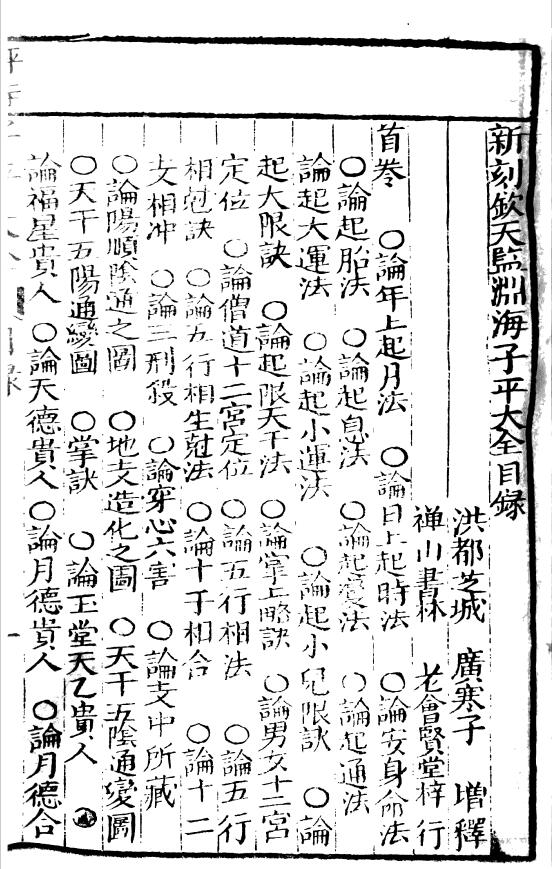 新刻欽天監淵海子平大全目録
洪都芝城 廣寒子 增釋
禅山書林 老會賢堂梓行
首巻 〇論年上起月法 〇論日上起時法 〇論安身命法
〇論起胎法 〇論起息法 〇論起変法 〇論起通法
論起大運法 〇論起小運法 〇論起小兒限訣 〇論
起大限訣 〇論起限天干法 〇論掌上略訣 〇論男女十二宮
定位 〇論僧道十二宮定位 〇論五行相法 〇論五行
相尅訣 〇論五行相生尅法 〇論十干相合 〇論十二
支相冲 〇論三刑殺 〇論穿心六害 〇論支中所藏
〇論陽順陰通之圖 〇地支造化之圖 〇天干五陰通變圖
〇天干五陽通變圖 〇掌訣 〇論玉堂天乙貴人
論福星貴人 〇論天德貴人 〇論月德貴人 〇論月德合